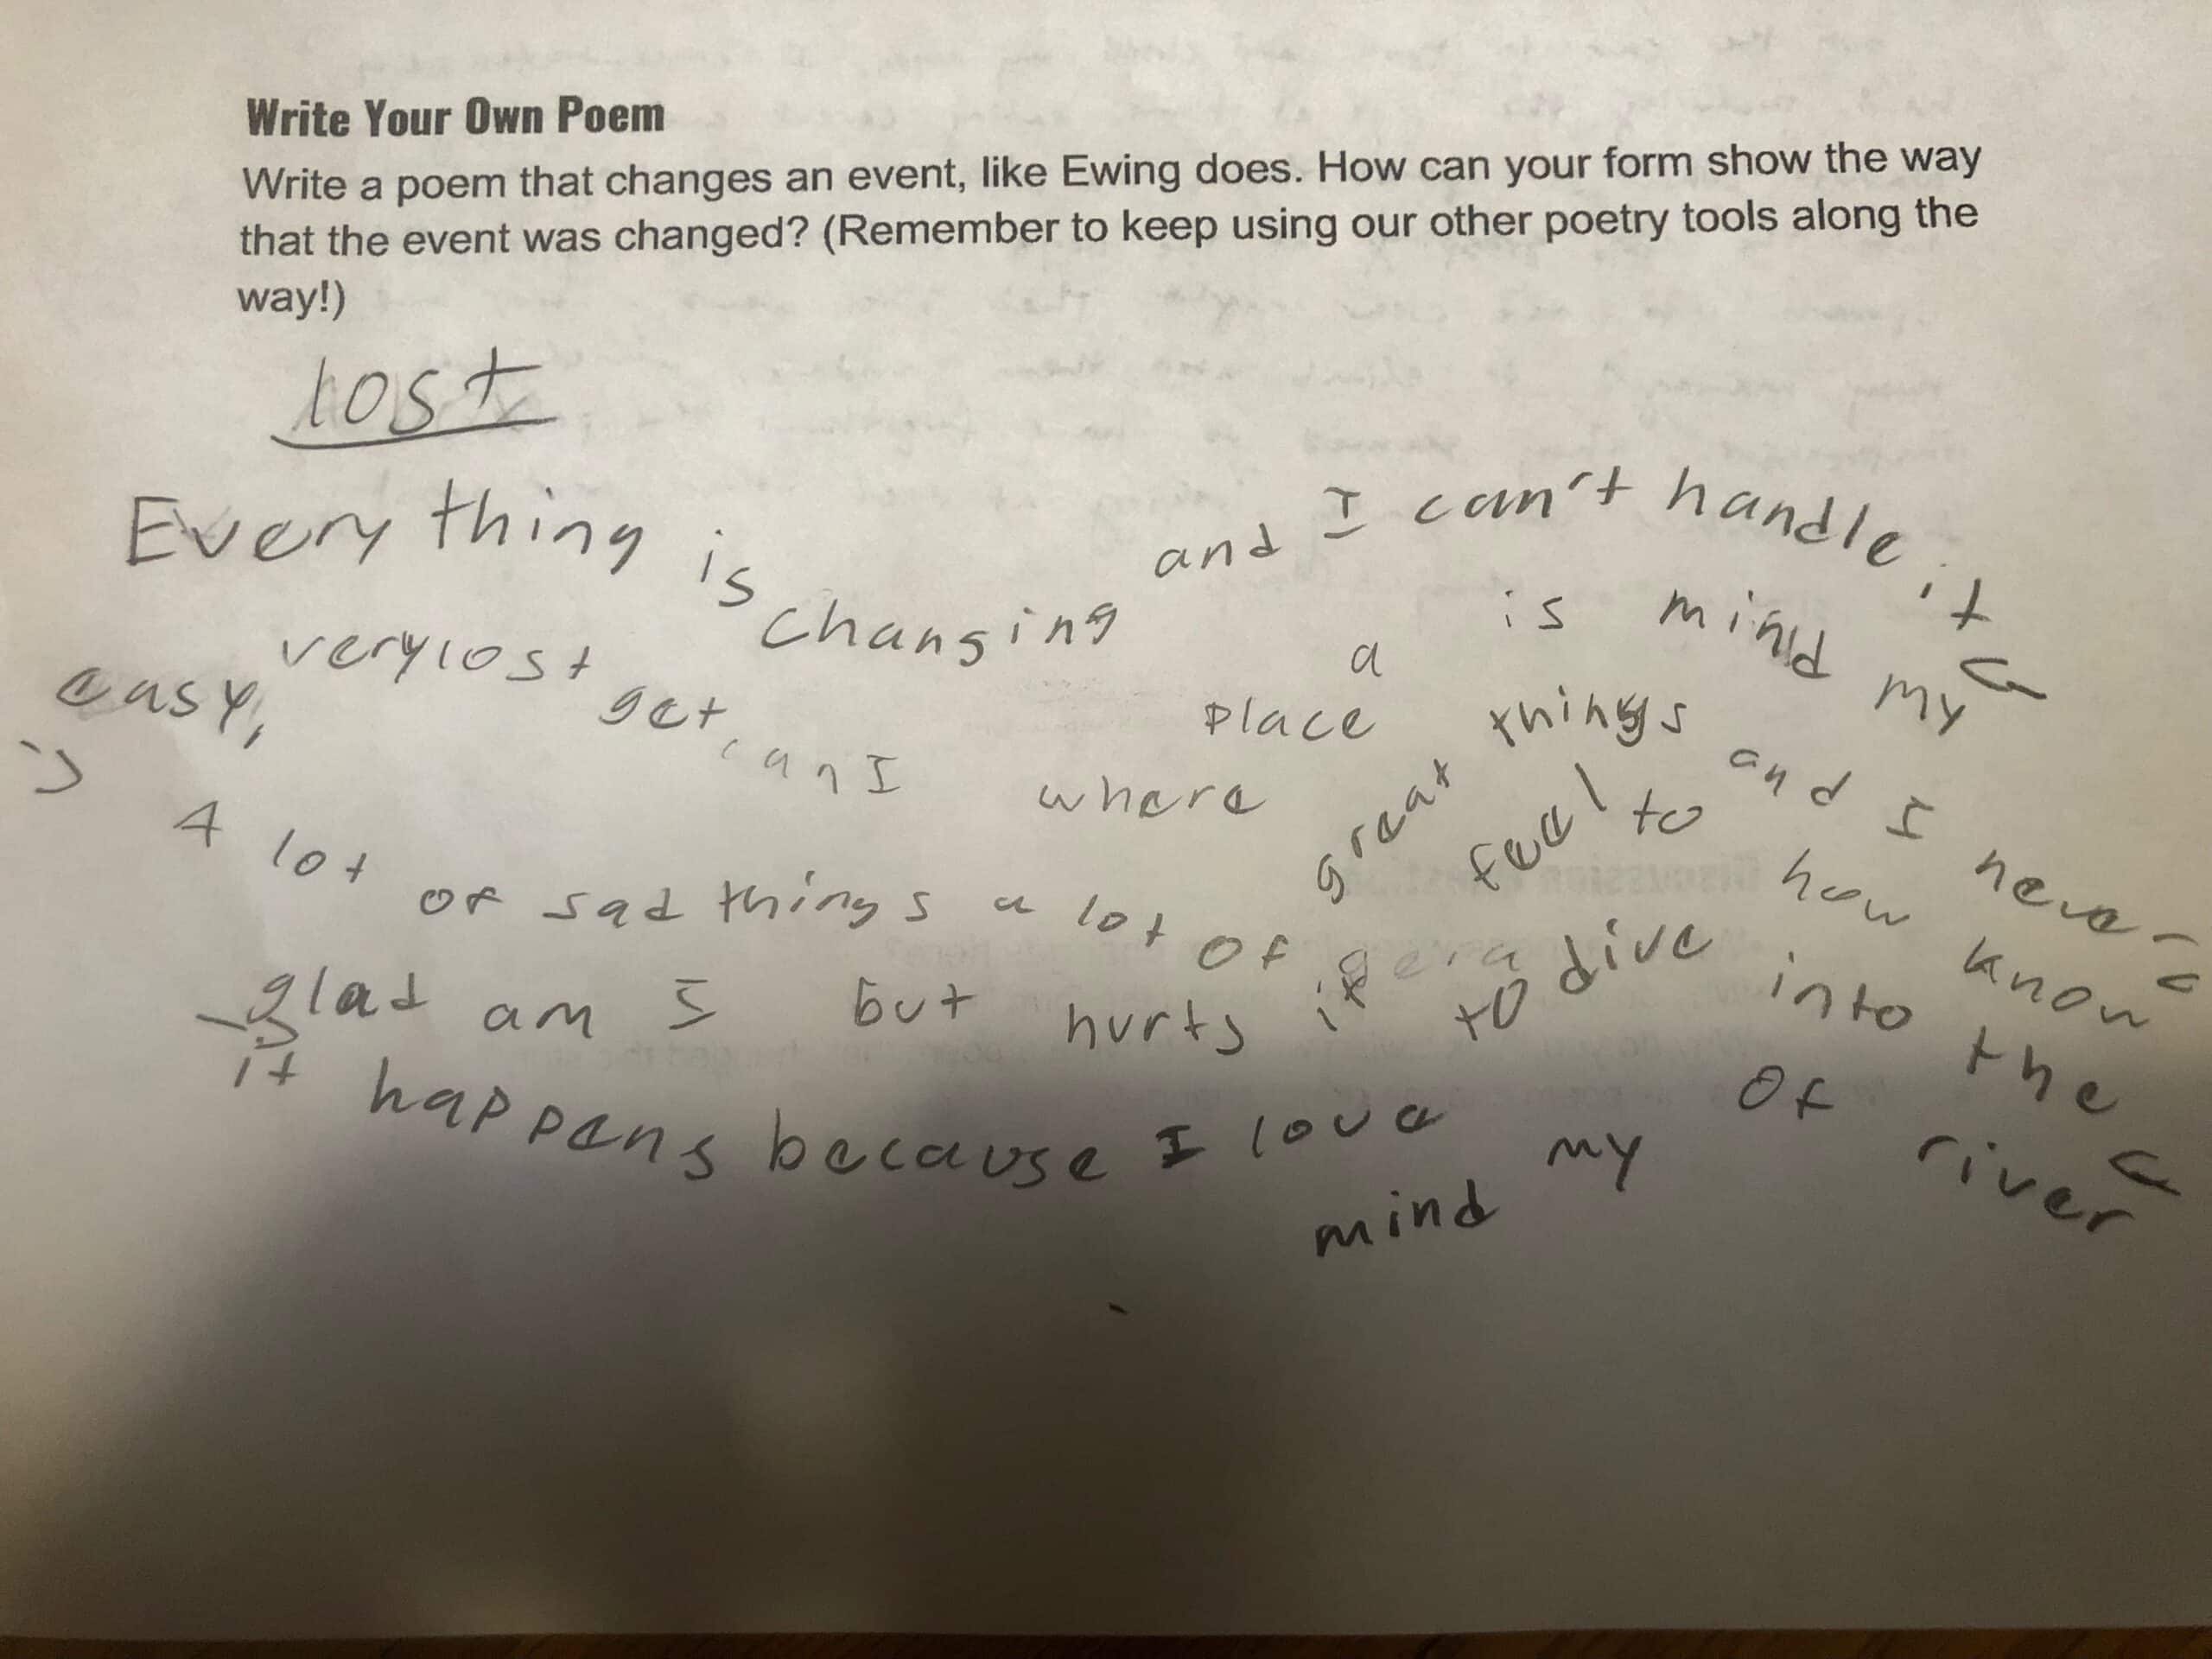 Write Your Own Poem
Write a poem that changes an event, like Ewing does. How can your form show the way
that the event was changed? (Remember to keep using our other poetry tools along the
way!)
lost
Everything is changing and I can't handle it
my mind is a place where I can get lost very easy,
A lot of sad things a lot of great things and I never
know how to feel it hurts but I am glad
it happens because I love to dive into the
river of my mind